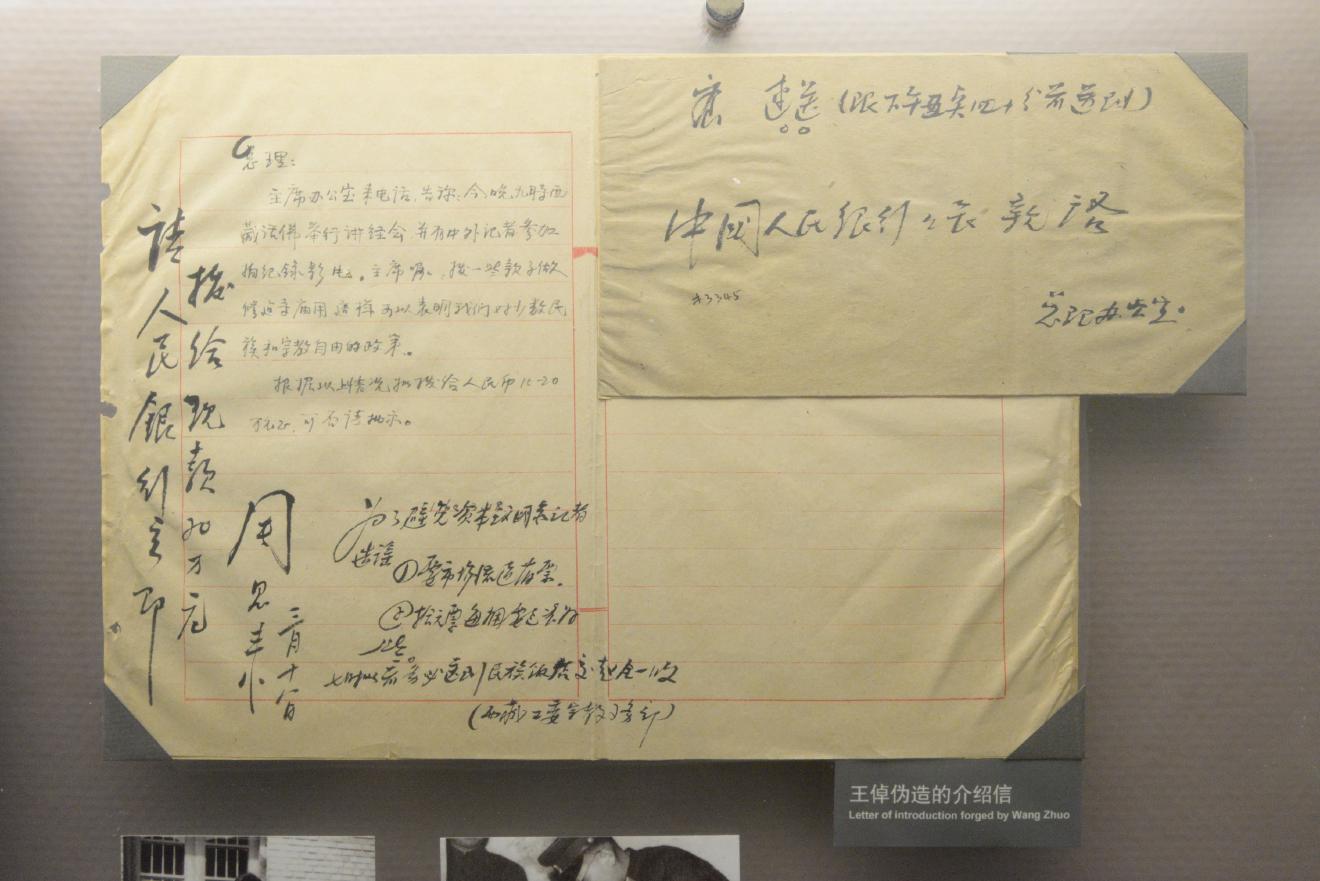 总理：
主席办公室来电话，告称：今晚九时西
藏活佛举行讲经会，并有中外记者参加
拍纪录影电。主席嘱，拨一些款子做
修适寺庙用 这样可以表明我们对少数民
族和宗教自由的政策。
根据以上情况拟拨给人民币15-20
万元正，可否请批示。
请人民銀行立即
拨给现款20万元
周恩来
三月十八日
为了避免资本主义国家记者
造谣
①要市场流通旧票。
②拾元票每捆要包装好
些。
七时以前务必送到民族饭店交赵全一收
(西藏工委宗教事务部)
速送（限下午五点四十分前送到）
中国人民银行 行长 亲启
总理办公室。
王倬伪造的介绍信
Letter of introduction forged by Wang Zhuo